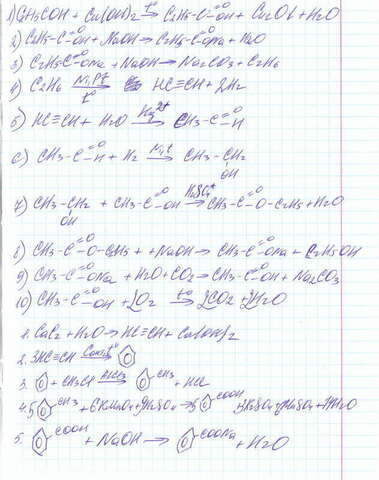 1) C2H5COH + Cu(OH)2 →t° C2H5-C=O-OH + Cu2O↓ + H2O
2) C2H5-C=O-OH + NaOH → C2H5-C=O-ONa + H2O
3) C2H5-C=O-ONa + NaOH → Na2CO3 + C2H6
4) C2H6 →Ni,Pt t° HC≡CH + 2H2
5) HC≡CH + H2O →Hg2+ CH3-C=O-H
6) CH3-C=O-H + H2 →Ni,t CH3-CH2-OH
7) CH3-CH2-OH + CH3-C=O-OH →H2SO4 CH3-C=O-O-C2H5 + H2O
8) CH3-C=O-O-C2H5 + NaOH → CH3-C=O-ONa + C2H5OH
9) CH3-C=O-ONa + H2O + CO2 → CH3-C=O-OH + Na2CO3
10) CH3-C=O-OH + 2O2 →t° 2CO2 + 2H2O
1. CaC2 + H2O → HC≡CH + Ca(OH)2
2. 3HC≡CH →Cакт,t°
3. + CH3Cl →AlCl3 CH3 + HCl
4. 5 CH3 + 6KMnO4 + 9H2SO4 → 5 COOH
5. COOH + NaOH → COONa + H2O